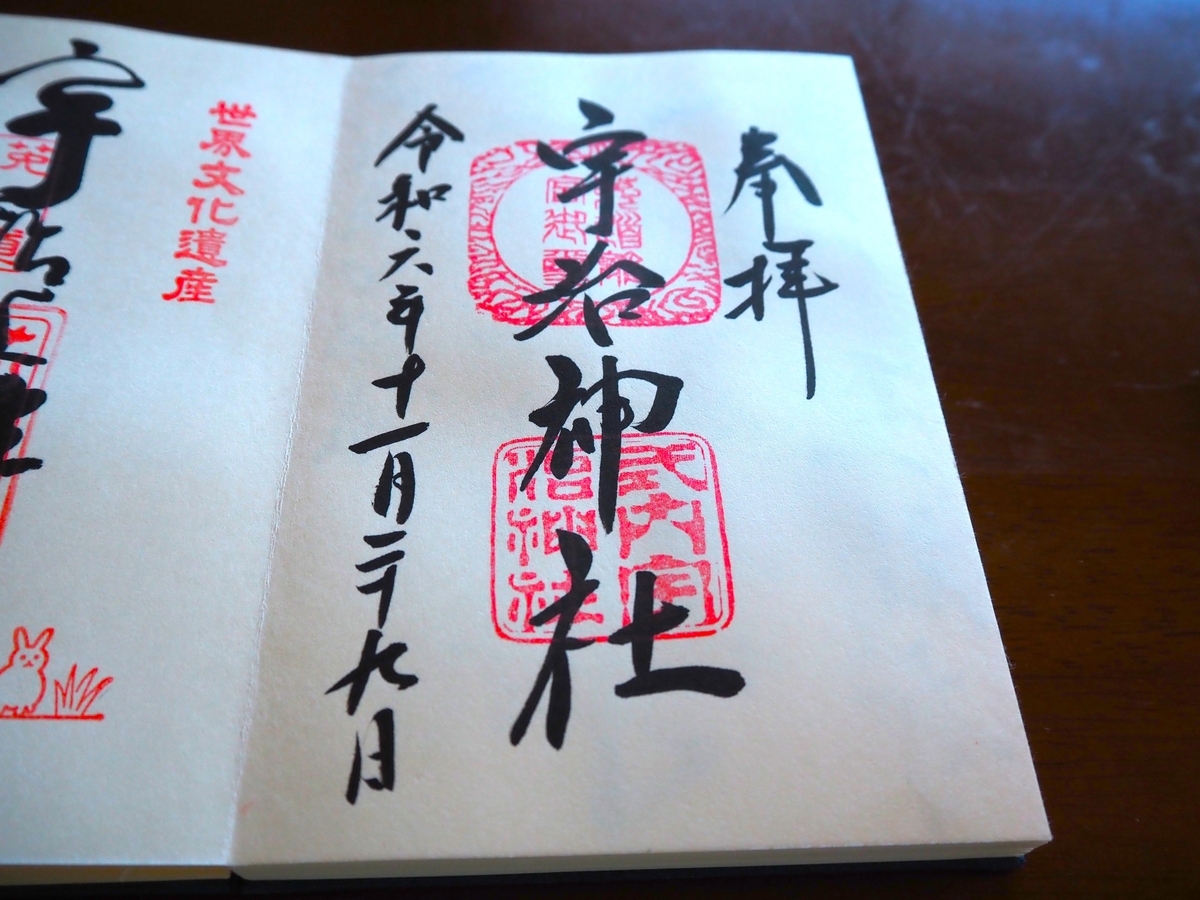 奉拝
宇治神社
式内宇
治神社
令和六年十一月二十九日
世界文化遺産
宇治上